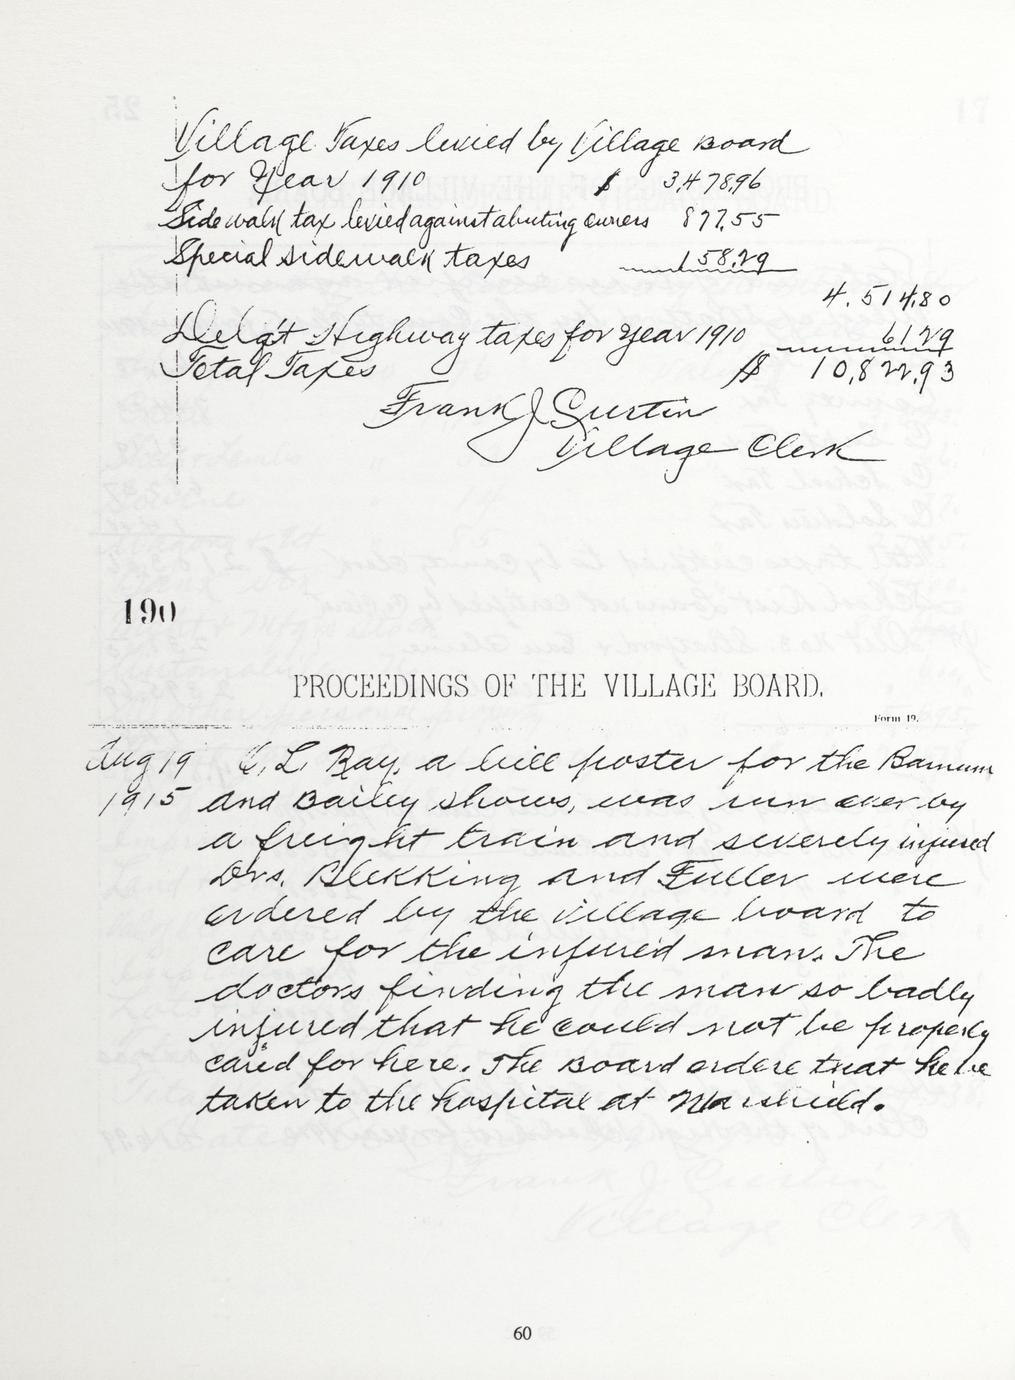 Village Taxes levied by Village Board
for Year 1910 $ 3,478.96
Sidewalk tax levied against abutting owners 877.55
Special sidewalk taxes 158.29
4,514.80
Delq't Highway taxes for Year 1910 61.29
Total Taxes $ 10,822.93
Frank J. Curtin
Village Clerk
190
PROCEEDINGS OF THE VILLAGE BOARD.
Form 19.
Aug 19 C. L. Ray, a bill poster for the Barnum
1915 and Bailey shows, was run over by
a freight train and severely injured
Drs. Blekking and Fuller were
ordered by the village board to
care for the injured man. The
doctors finding the man so badly
injured that he could not be properly
cared for here. The Board ordere that he be
taken to the hospital at Marshield.
60